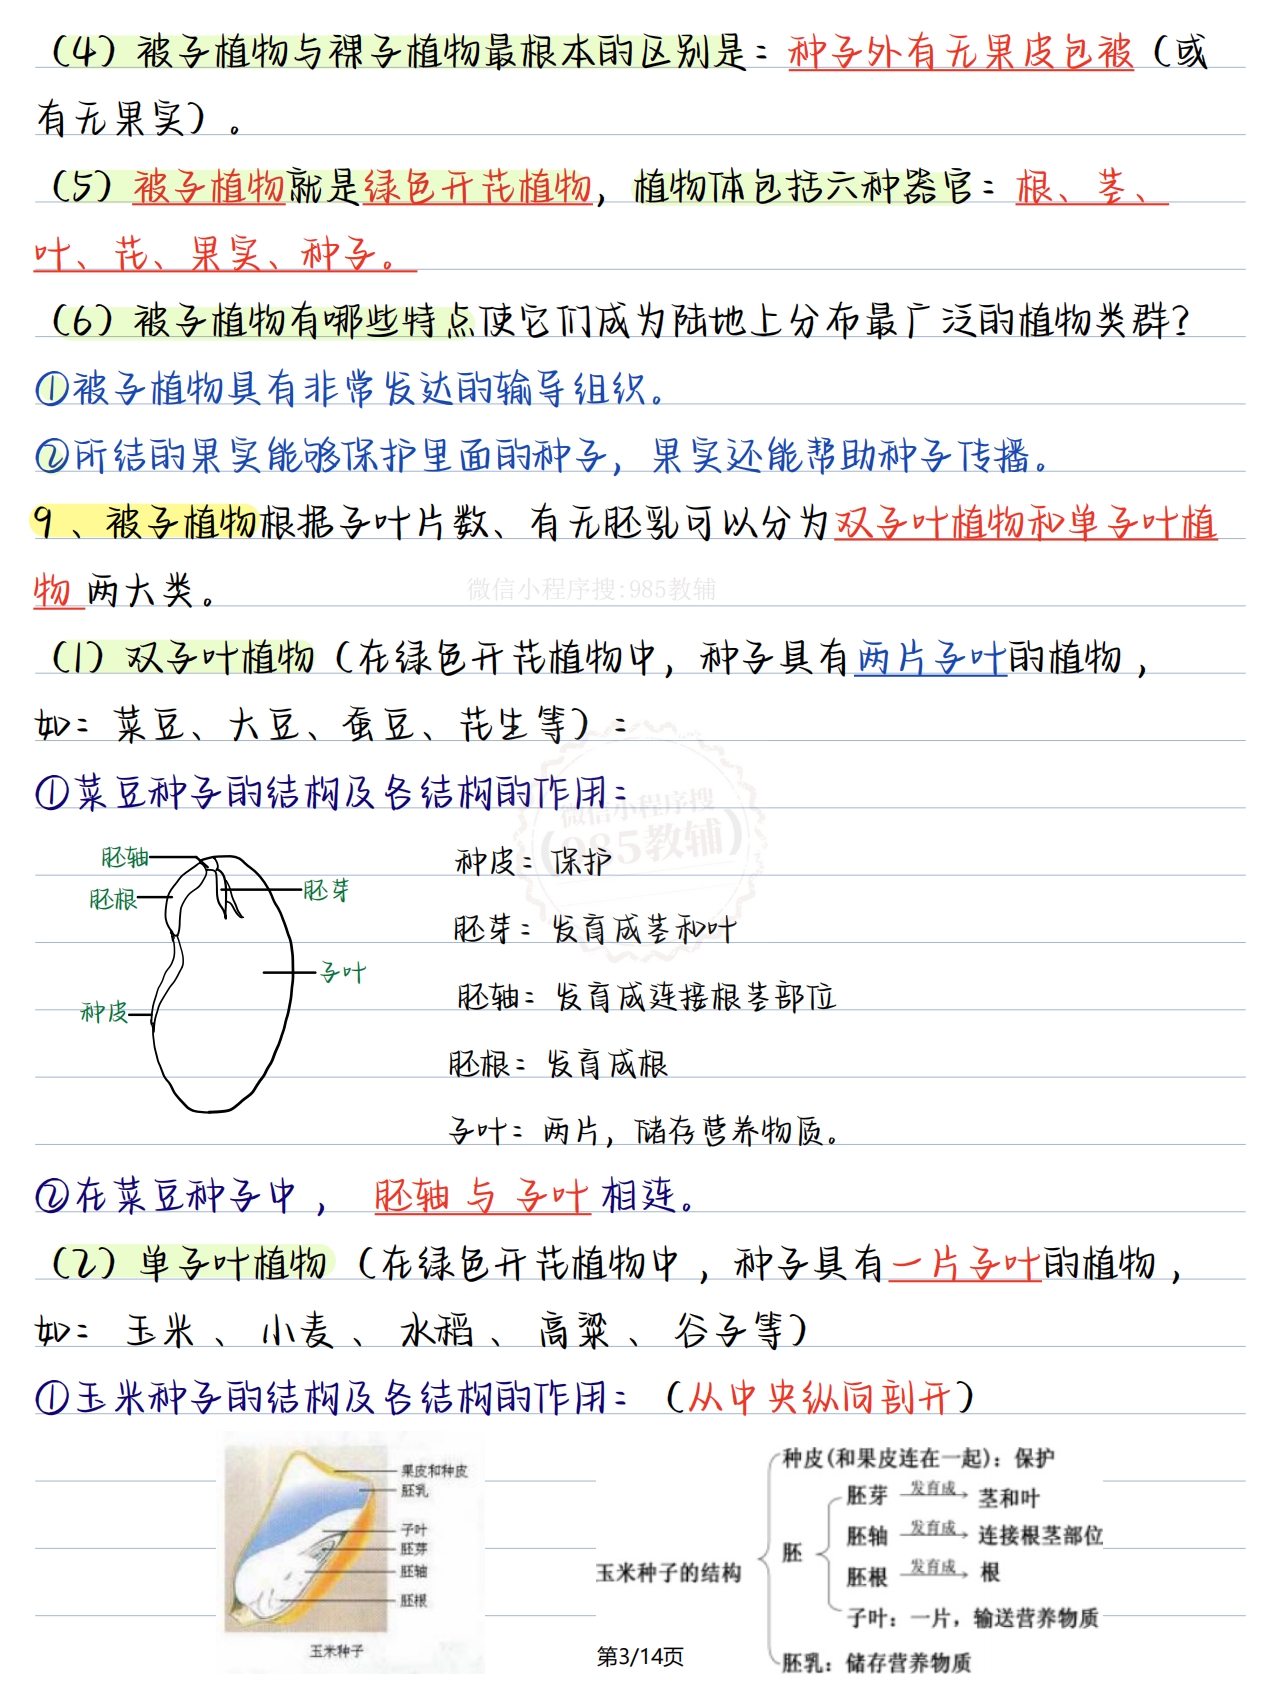 （4）被子植物与裸子植物最根本的区别是：种子外有无果皮包被（或
有无果实）。
（5）被子植物就是绿色开花植物，植物体包括六种器官：根、茎、
叶、花、果实、种子。
（6）被子植物有哪些特点使它们成为陆地上分布最广泛的植物类群？
①被子植物具有非常发达的输导组织。
②所结的果实能够保护里面的种子，果实还能帮助种子传播。
9、被子植物根据子叶片数、有无胚乳可以分为双子叶植物和单子叶植
物 两大类。
微信小程序搜:985教辅
（1）双子叶植物（在绿色开花植物中，种子具有两片子叶的植物，
如：菜豆、大豆、蚕豆、花生等）：
①菜豆种子的结构及各结构的作用：
微信小程序搜
（985教辅）
胚轴
胚根
胚芽
子叶
种皮
种皮：保护
胚芽：发育成茎和叶
胚轴：发育成连接根茎部位
胚根：发育成根
子叶：两片，储存营养物质。
②在菜豆种子中， 胚轴 与 子叶 相连。
（2）单子叶植物（在绿色开花植物中，种子具有一片子叶的植物，
如： 玉米 、 小麦 、 水稻 、 高粱 、 谷子等）
①玉米种子的结构及各结构的作用：（从中央纵向剖开）
果皮和种皮
胚乳
子叶
胚芽
胚轴
胚根
玉米种子
玉米种子的结构
种皮(和果皮连在一起)：保护
胚
胚芽 发育成 茎和叶
胚轴 发育成 连接根茎部位
胚根 发育成 根
子叶：一片，输送营养物质
胚乳：储存营养物质
第3/14页